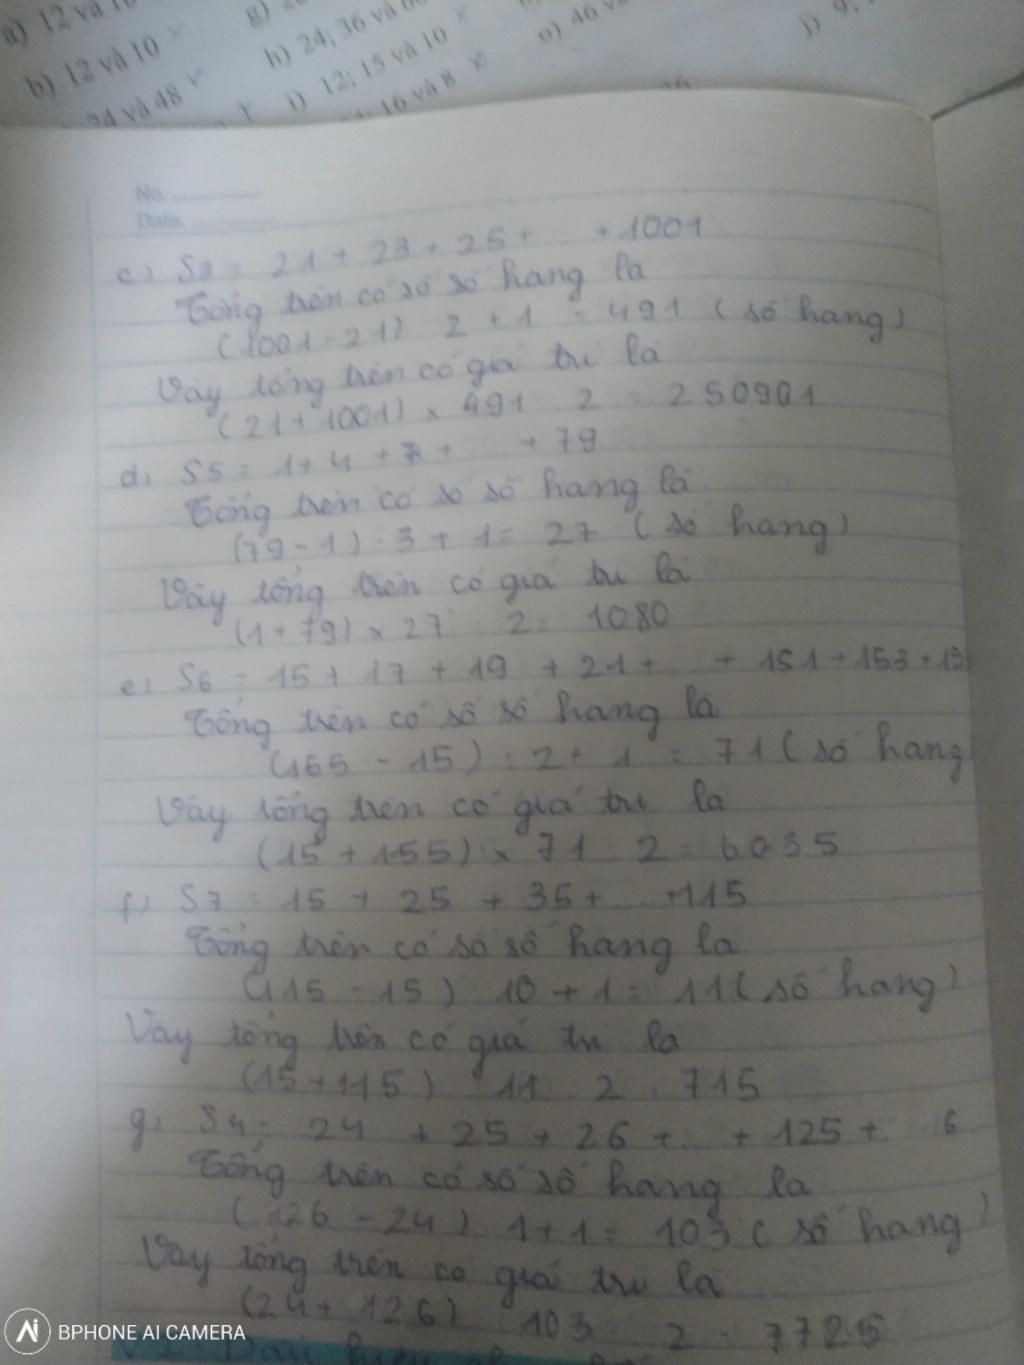 a) 12 và
b) 12 và 10
24 và 48
g)
h) 24; 36 và
i) 12; 15 và 10
16 và 8
o) 46
j) 9;
No.
Date
c) S3 = 21 + 23 + 25 + ... + 1001
Tổng trên có số số hạng là
(1001 - 21) : 2 + 1 = 491 (số hạng)
Vậy tổng trên có giá trị là
(21 + 1001) × 491 : 2 = 250901
d) S5 = 1 + 4 + 7 + ... + 79
Tổng trên có số số hạng là
(79 - 1) : 3 + 1 = 27 (số hạng)
Vậy tổng trên có giá trị là
(1 + 79) × 27 : 2 = 1080
e) S6 = 15 + 17 + 19 + 21 + ... + 151 + 153 + 15
Tổng trên có số số hạng là
(155 - 15) : 2 + 1 = 71 (số hạng
Vậy tổng trên có giá trị là
(15 + 155) × 71 : 2 = 6035
f) S7 = 15 + 25 + 35 + ... + 115
Tổng trên có số số hạng là
(115 - 15) : 10 + 1 = 11 (số hạng)
Vậy tổng trên có giá trị là
(15 + 115) 11 : 2 = 715
g) S4 = 24 + 25 + 26 + ... + 125 + 6
Tổng trên có số số hạng là
(126 - 24) : 1 + 1 = 103 (số hạng)
Vậy tổng trên có giá trị là
(24 + 126) 103 : 2 = 7725
BPHONE AI CAMERA